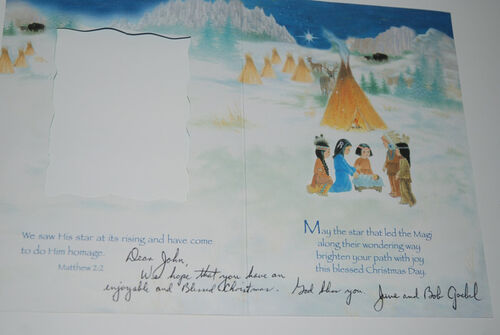 We saw His star at its rising and have come
to do Him homage.
Matthew 2:2
Dear John,
We hope that you have an
enjoyable and Blessed Christmas. God bless you.
June and Bob Goebel
May the star that led the Magi
along their wondering way
brighten your path with joy
this blessed Christmas Day.